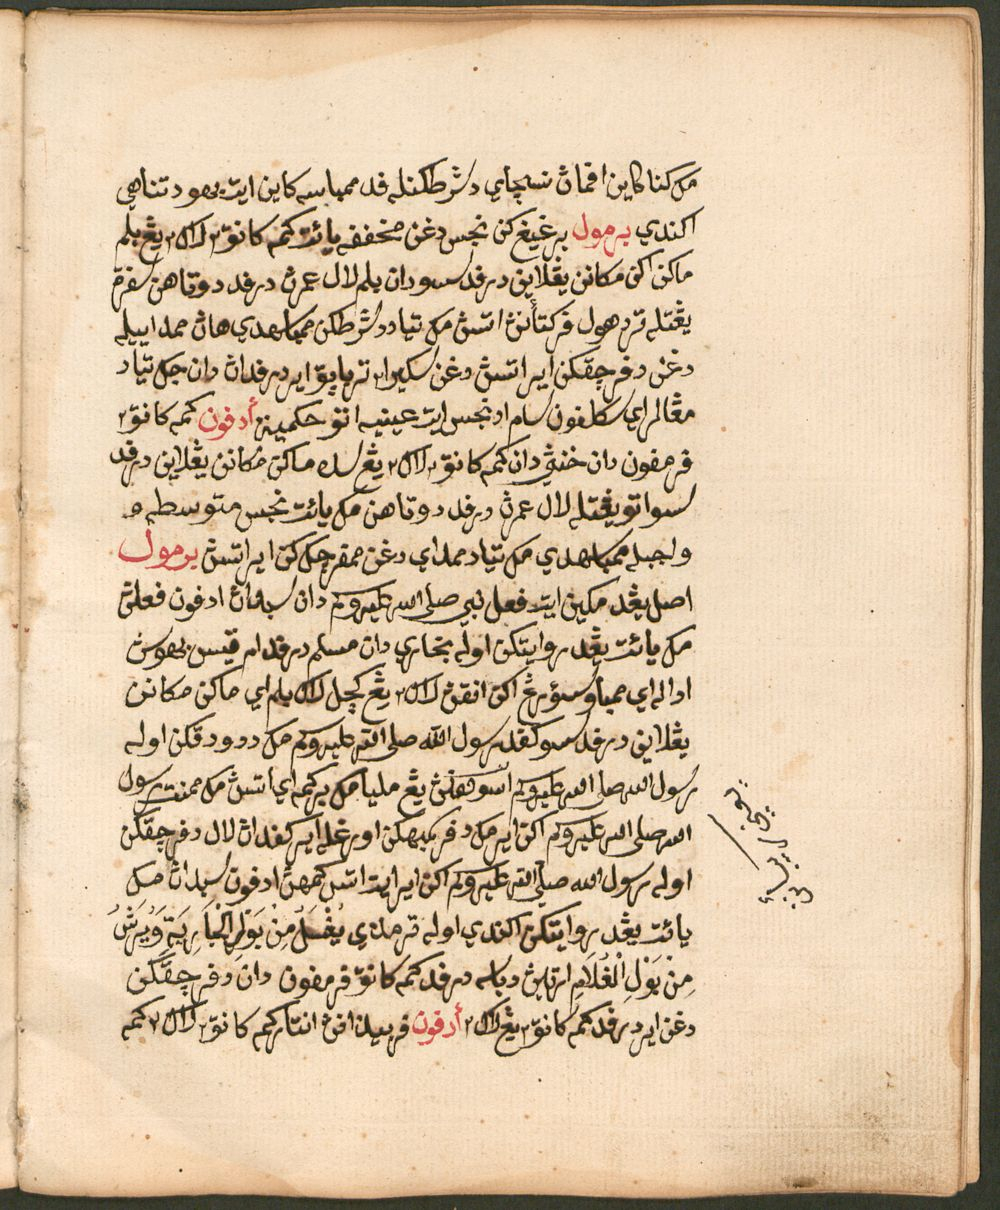 مک کنا کاين افمان نسچاي دشرطکنله قد ممباسه کاين ايت بهو دتناهي
اکندي برمول برغيغ کن نجس دغن مخففه يائت کمه کانق٢ لاک٢ يڠ بلم
ماکن اکن مکانن يڠلاين درفد سسو دان بلم لالو عمرڽ درفد دوتاهن سفرة
يڠتله تردهول فرکتأنڽ اتسڽ مک تياد دشرطکن ممباسهدي هاڽ ممداييله
دغن دفرچقکن اير اتسڽ دغن سکيرا٢ تربايق اير درفداڽ دان جک تياد
مڠالراي سکلفون سام اد نجس ايت عينيه اتو حکميه أدفون کمه کانق٢
فرمفون دان خنثى دان کمه کانق٢ لاک٢ يڠ سده ماکن مکانن يڠلاين درفد
سسو اتو يڠتله لالو عمرڽ درفد دوتاهن مک يائت نجس متوسطه و
واجبله ممباسهدي مک تياد ممداي دغن ممفرچيککن اير اتسڽ برمول
اصل يڠد مکين ايت فعل نبي صلى الله عليه وسلم دان سبداڽ ادفون فعلڽ
مک يائت يڠد روايتکن اوله بخاري دان مسلم درفد ام قيس بهوسڽ
اداله اي ممباو سؤرڠ اکن انقڽ لاک٢ يڠ کچيل لاک بلم اي ماکن مکانن
يڠلاين درفد سسو کفد رسول الله صلى الله عليه وسلم مک ددودقکن اوله
رسول الله صلى الله عليه وسلم اتس فڠکوڽ يڠ مليا مک برکمه اي اتسڽ مک ممنت رسول
الله صلى الله عليه وسلم اکن اير مک دفرسمبهکن اورغله اير کفداڽ لالو دفرچقکن
اوله رسول الله صلى الله عليه وسلم اکن اير ايت اتس کمهڽ ادفون سبداڽ مک
يائت يڠد روايتکن اکندي اوله ترمذي يُغْسَلُ مِنْ بَوْلِ الْجَارِيَةِ وَيُرَشُّ
مِنْ بَوْلِ الْغُلَامِ ارتيڽ دباسه درفد کمه کانق٢ فرمفون دان دفرچقکن
دغن اير درفد کمه کانق٢ يڠ لاک٢ أدفون فربيذاءن انتار کمه کانق٢ لاک٢ کمه